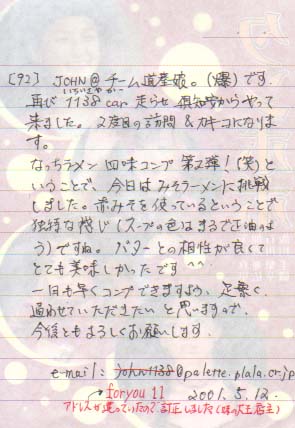 [92] JOHN@チーム道産娘。(爆)です。
いちいちさんやーがー
再び 1138 car 走らせ 倶知安からやって
来ました。2度目の訪問&カキコになりま
す。
なっちラメン 四味コンプ 第2弾！(笑)と
いうことで、今日はみそラーメンに挑戦
しました。赤みそを使っているということで
独特な感じ(スープの色はまるで正油のよ
う)ですね。バターとの相性が良くて
とても美味しかったです^^
一日も早くコンプできますよう、足繁く
通わせていただきたいと思いますので、
今後ともよろしくお願いします。
e-mail: john1138@palette.plala.or.jp
foryou 11 2001.5.12.
アドレスが違っていたので訂正しました(味の大王店主)